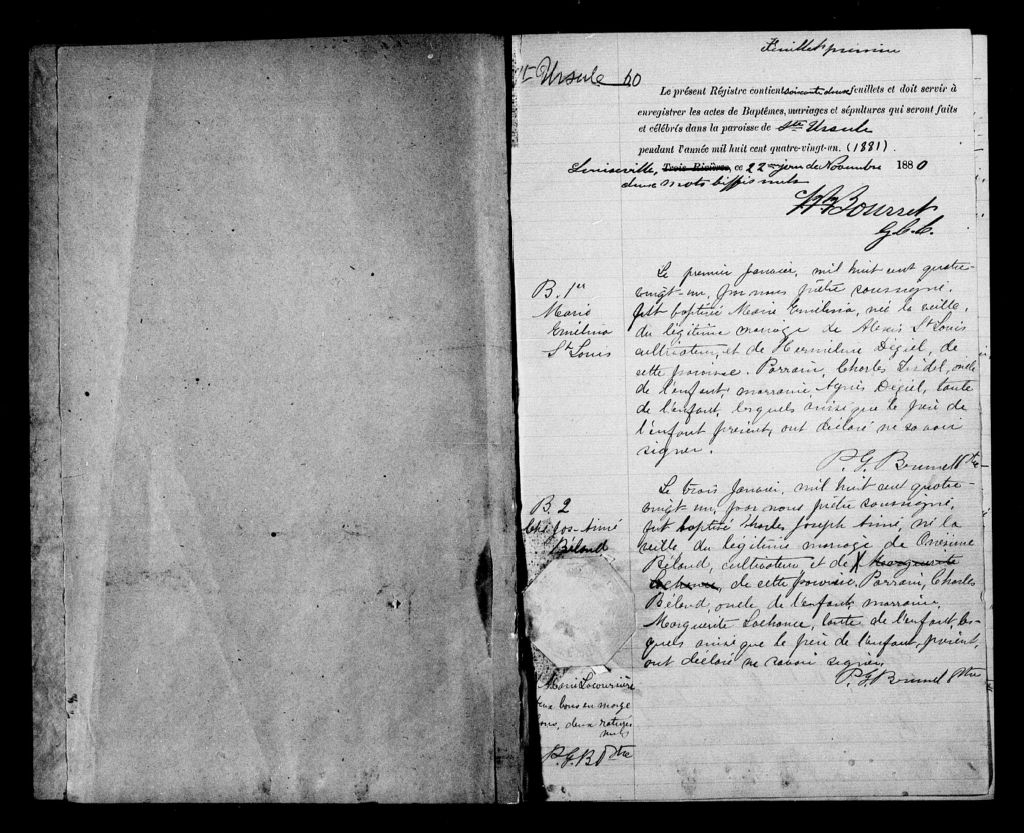 Feuillet premier
Ste Ursule 60
Le présent Régistre contient soixante deux feuillets et doit servir à
enregistrer les actes de Baptêmes, mariages et sépultures qui seront faits
et célébrés dans la paroisse de Ste Ursule
pendant l'année mil huit cent quatre-vingt-un. (1881)
Louiseville, Trois Rivières, ce 22 me jour de Novembre 1880
deux mots biffés nuls
Bourret
G.C.C.
B. 1er
Marie
Emélina
St Louis
Le premier Janvier, mil huit cent quatre-
vingt-un, par nous prêtre soussigné,
fut baptisé Marie Emélina, née la veille,
du légitime mariage de Alexis St Louis
cultivateur, et de Hermeline Dégiel, de
cette paroisse. Parrain, Charles, oncle
de l'enfant, marraine, Agnès Dégiel, tante
de l'enfant, lesquels ainsi que le père de
l'enfant présent, ont déclaré ne savoir
signer.
P. G. Brunel Ptre
B. 2
Chs Jos-Aimé
Béland
Le trois Janvier, mil huit cent quatre-
vingt-un, par nous prêtre soussigné,
fut baptisé Charles Joseph Aimé, né la
veille du légitime mariage de Onésime
Béland, cultivateur et de X Marguerite
Lachance, de cette paroisse. Parrain, Charles
Béland, oncle de l'enfant, marraine,
Marguerite Lachance, tante de l'enfant, les-
quels ainsi que le père de l'enfant, présent,
ont déclaré ne savoir signer.
P. G. Brunel Ptre
Marie Lacoursière
deux bons en marge
bons, deux raturés
nuls
P.G.B Ptre